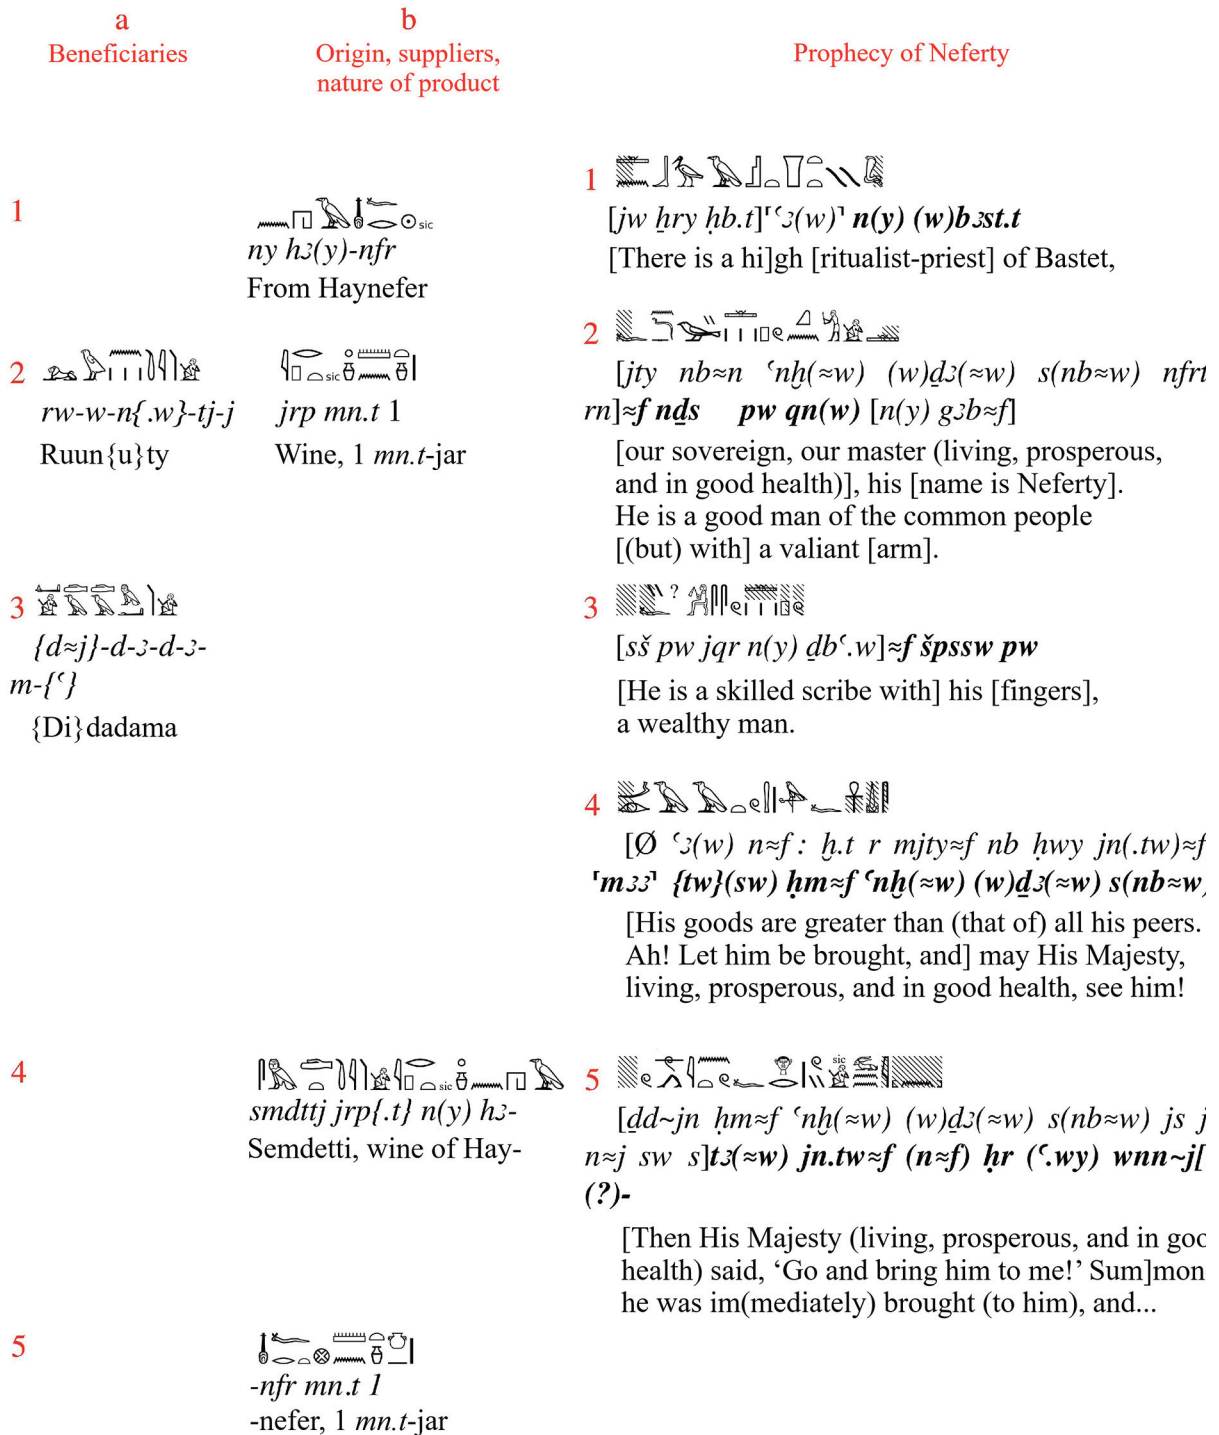 a
Beneficiaries
1
2
rw-w-n{.w}-tj-j
Ruun{u}ty
3
{d≈j}-d-ꜣ-d-ꜣ-
m-{ꜥ}
{Di}dadama
4
5
b
Origin, suppliers,
nature of product
sic
ny hꜣ(y)-nfr
From Haynefer
sic
jrp mn.t 1
Wine, 1 mn.t-jar
sic
smdttj jrp{.t} n(y) hꜣ-
Semdetti, wine of Hay-
-nfr mn.t 1
-nefer, 1 mn.t-jar
Prophecy of Neferty
1
[jw ẖry ḥb.t]⸢ꜥꜣ(w)⸣ n(y) (w)bꜣst.t
[There is a hi]gh [ritualist-priest] of Bastet,
2
[jty nb≈n ꜥnḫ(≈w) (w)ḏꜣ(≈w) s(nb≈w) nfrt
rn]≈f nḏs pw qn(w) [n(y) gꜣb≈f]
[our sovereign, our master (living, prosperous,
and in good health)], his [name is Neferty].
He is a good man of the common people
[(but) with] a valiant [arm].
3 ?
[sš pw jqr n(y) ḏbꜥ.w]≈f špssw pw
[He is a skilled scribe with] his [fingers],
a wealthy man.
4
[Ø ꜥꜣ(w) n≈f : ḫ.t r mjty≈f nb ḥwy jn(.tw)≈f
⸢mꜣꜣ⸣ {tw}(sw) ḥm≈f ꜥnḫ(≈w) (w)ḏꜣ(≈w) s(nb≈w)
[His goods are greater than (that of) all his peers.
Ah! Let him be brought, and] may His Majesty,
living, prosperous, and in good health, see him!
5 sic
[ḏd~jn ḥm≈f ꜥnḫ(≈w) (w)ḏꜣ(≈w) s(nb≈w) js j
n≈j sw s]tꜣ(≈w) jn.tw≈f (n≈f) ḥr (ꜥ.wy) wnn~j[
(?)-
[Then His Majesty (living, prosperous, and in goo
health) said, ‘Go and bring him to me!’ Sum]mon
he was im(mediately) brought (to him), and...